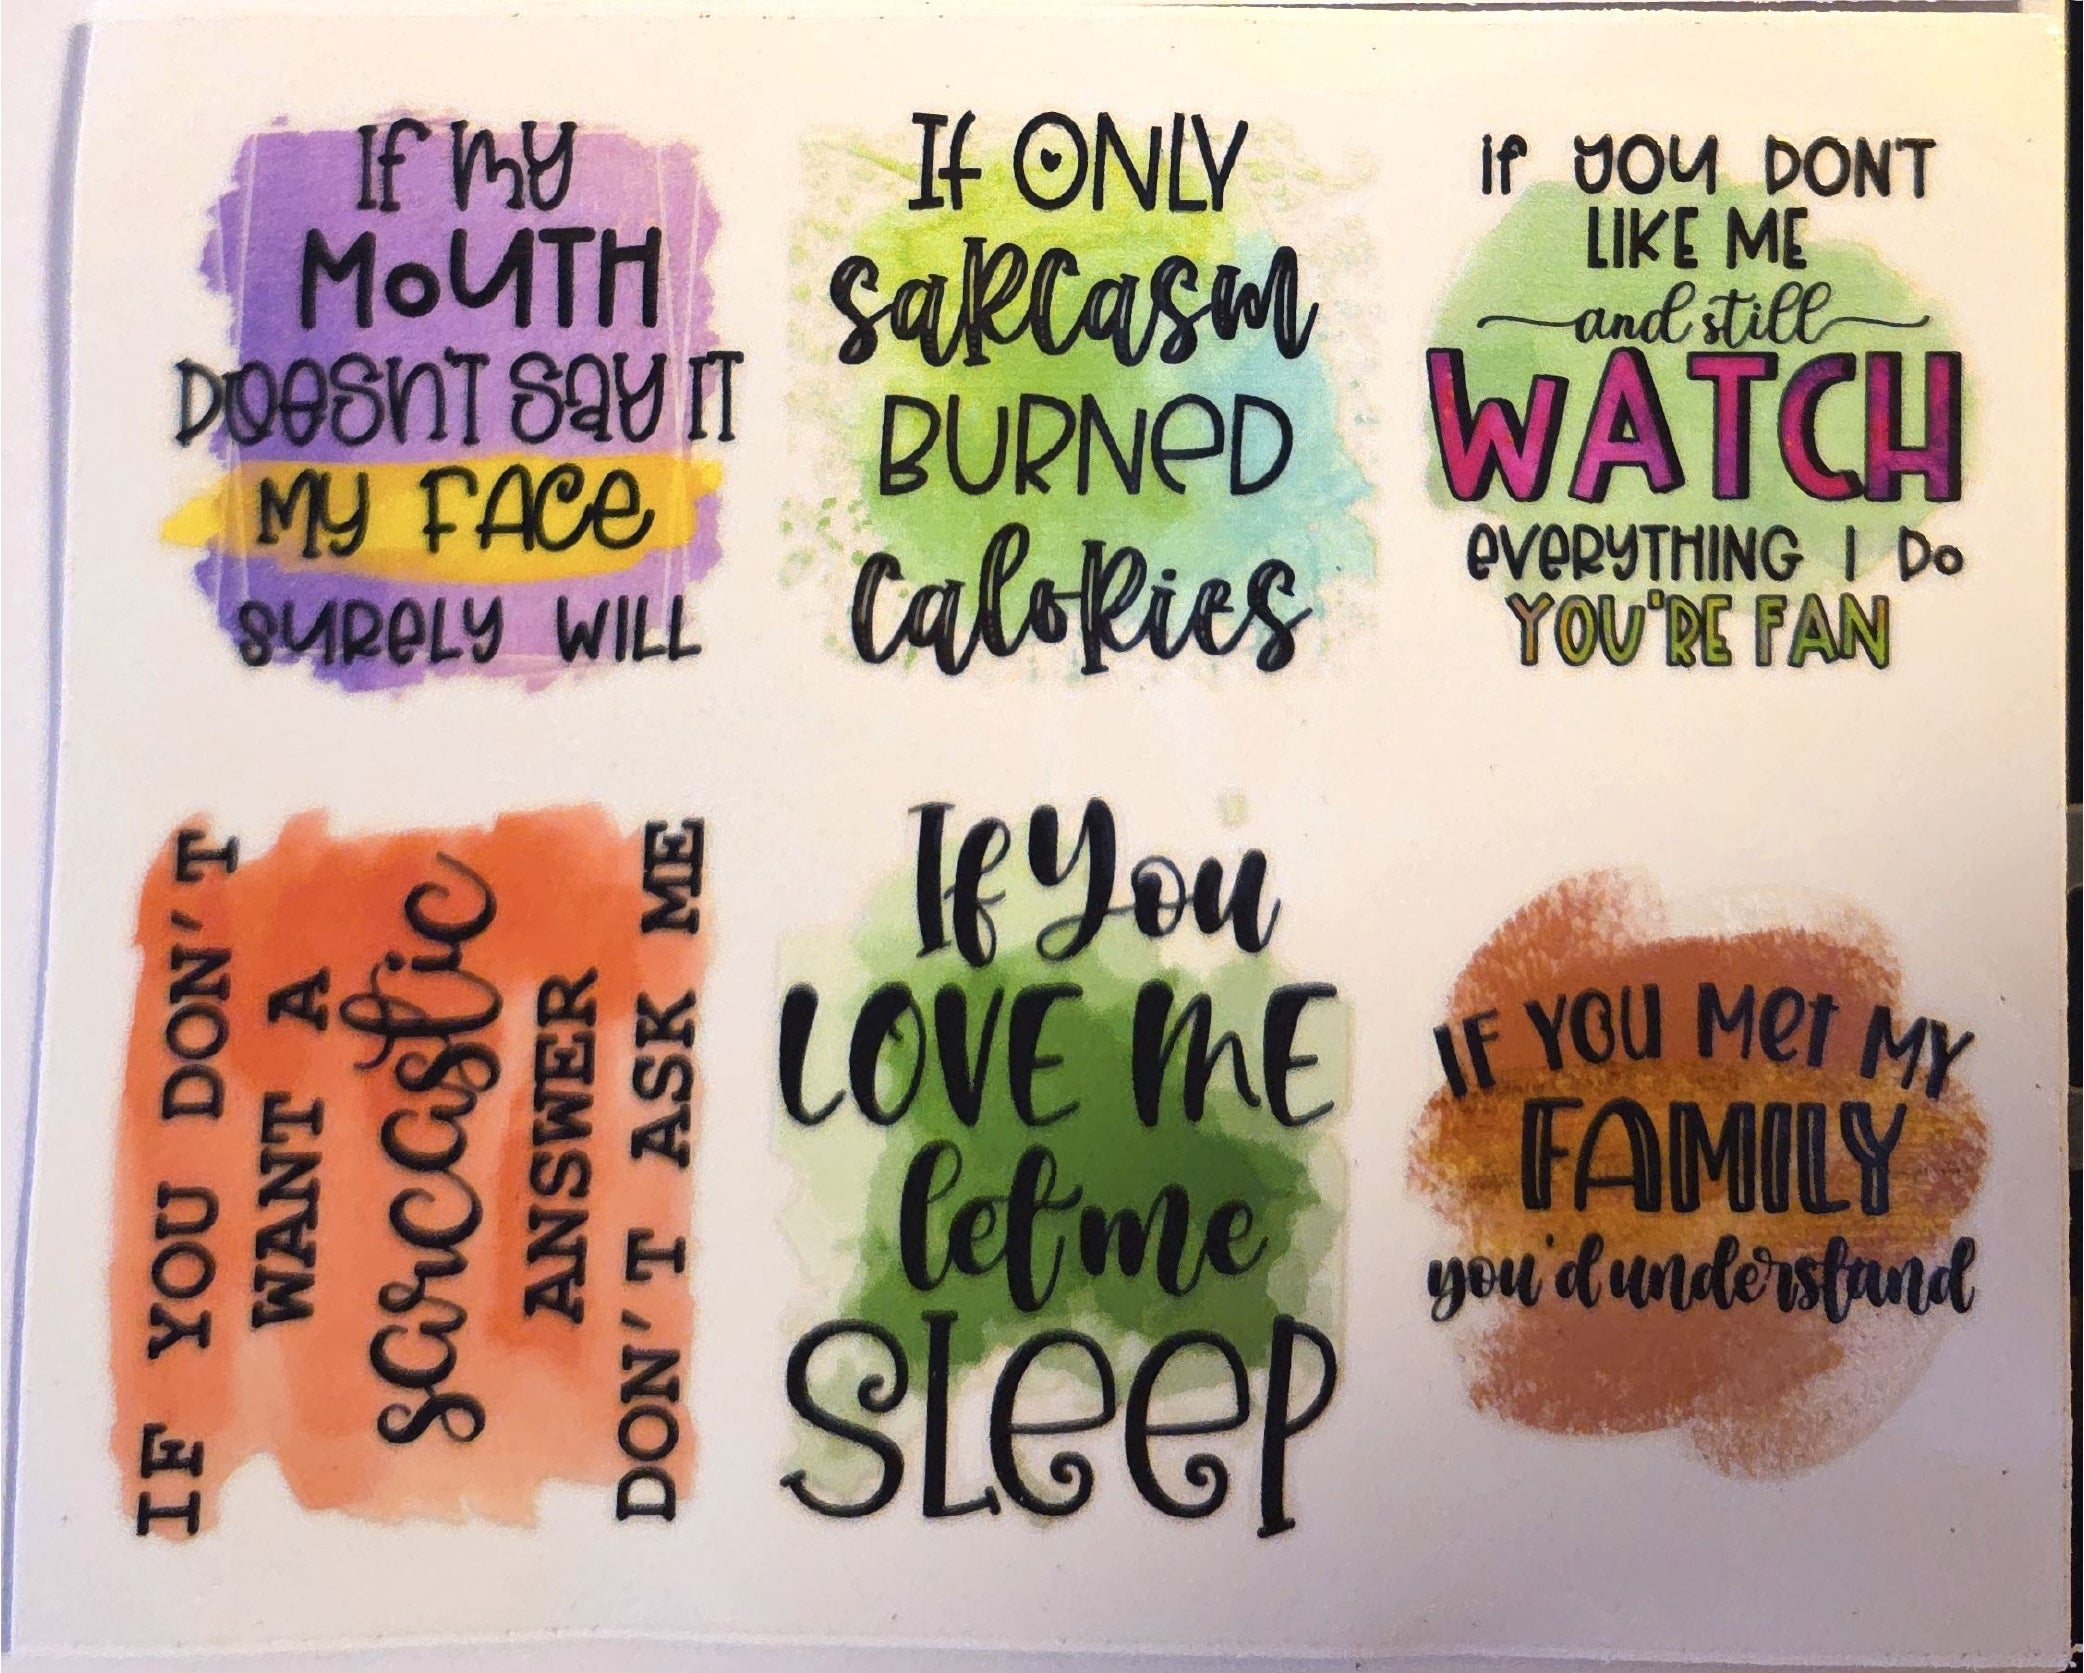 If my
MOUTH
DOESN'T SAY IT
MY FACE
SURELY WILL
If ONLY
sarcasm
BURNED
calories
if you DON'T
LIKE ME
and still
WATCH
everything I Do
YOU'RE FAN
IF YOU DON'T
WANT A
sarcastic
ANSWER
DON'T ASK ME
If You
LOVE ME
let me
SLeeP
IF YOU Met MY
FAMILY
you'd understand